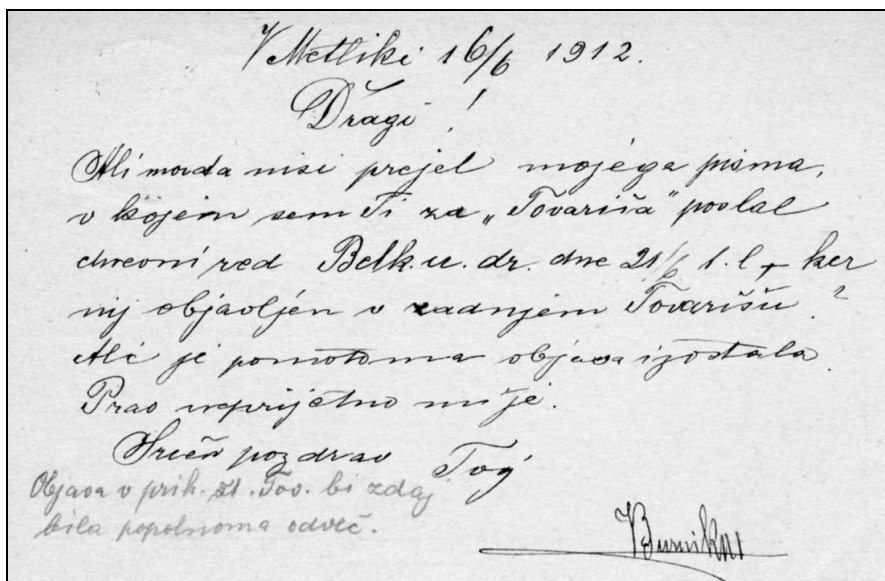 V Metliki 16/6 1912.
Dragi!
Ali morda nisi prejel mojega pisma,
v kojem sem Ti za „Tovariša“ poslal
dnevni red Belk. u. dr. dne 21/6 t. l., ker
nij objavljen v zadnjem Tovarišu?
Ali je pomotoma objava izostala.
Prav neprijetno mi je.
Srčen pozdrav Tvoj
Objava v prih. št. Tov. bi zdaj
bila popolnoma odveč.